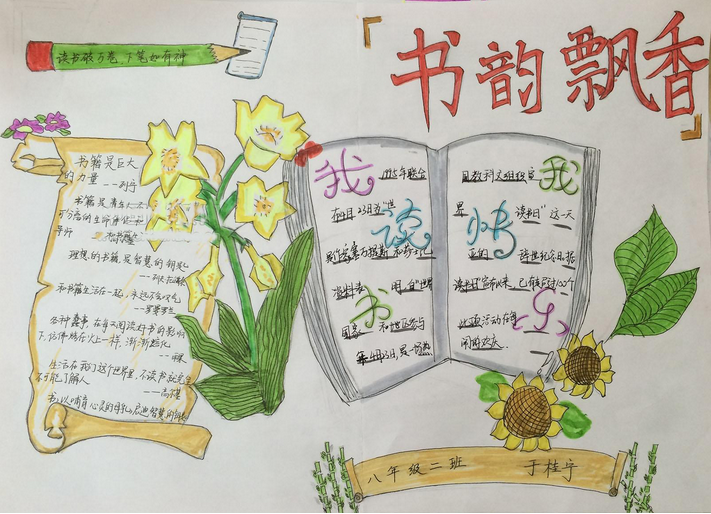 读书破万卷 下笔如有神
书韵飘香
书籍是巨大
的力量 --列宁
书籍是青年人
可分离的生命伴侣
导师
理想的书籍是智慧的钥匙
--列夫·托尔斯泰
和书籍生活在一起,永远不会叹气
--罗曼·罗兰
各种蠢事,在每天阅读好书的影响
下,仿佛烤在火上一样,渐渐熔化
--雨果
生活在我们这个世界里,不读书就完全
不可能了解人
--高尔基
书,以哺育心灵的母乳,启迪智慧的
我读书
1995年联合
在4月23日为"世
和
用自"世
国家 和地区参与
年4月23日,是
我快乐
国教科文组织宣
界 读书日"这一天
辞世纪念日,据
读书日"宣布以来 已有超过100个
此项活动在每
闹的欢庆
八年级二班 于桂宇